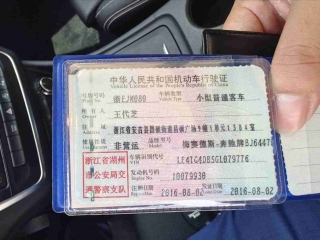 中华人民共和国机动车行驶证
Vehicle License of the People's Republic of China
号牌号码 浙EJM080 车辆类型 Vehicle Type 小型普通客车
所有人 王代芝
住址 浙江省安吉县
使用性质 非营运 品牌型号 梅赛德斯-奔驰牌BJ6447
浙江省湖州
市公安局交
通警察支队
车辆识别代号 LE4TG4DB5GL079776
发动机号码 10079930
注册日期 2016-08-02 发证日期 2016-08-02